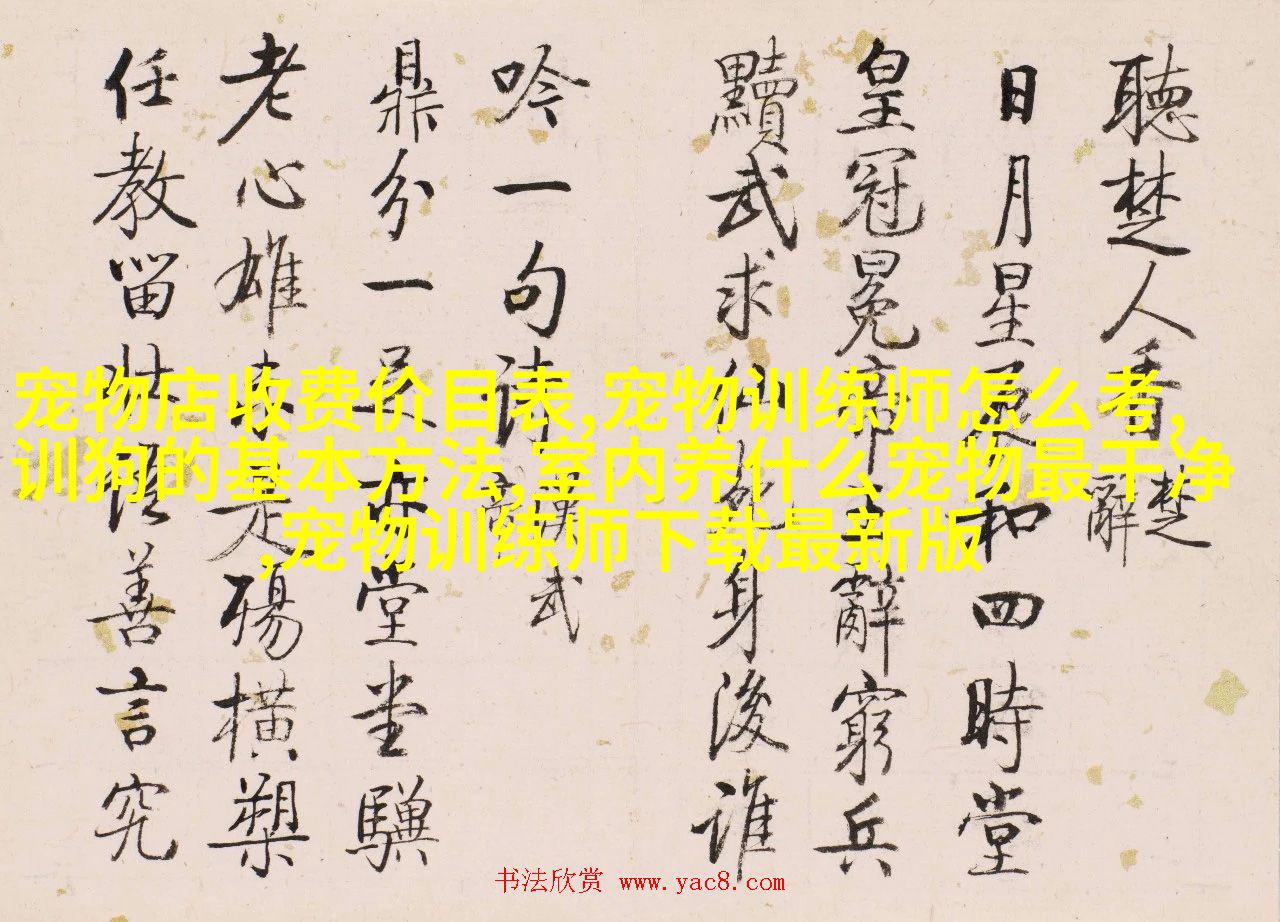 聽楚人香楚
辭
日月星辰和四時堂
皇冠冕帝王辭窮兵
黷武求仙死身後誰
吟一句詩漢武
辭
鼎分一足亦堂堂驥
老心雄未是殤橫槊
任教留
善言究
宠物店收费价目表,宠物训练师怎么考,
训狗的基本方法,室内养什么宠物最干净
,宠物训练师下载最新版
书法欣赏 www.yac8.com